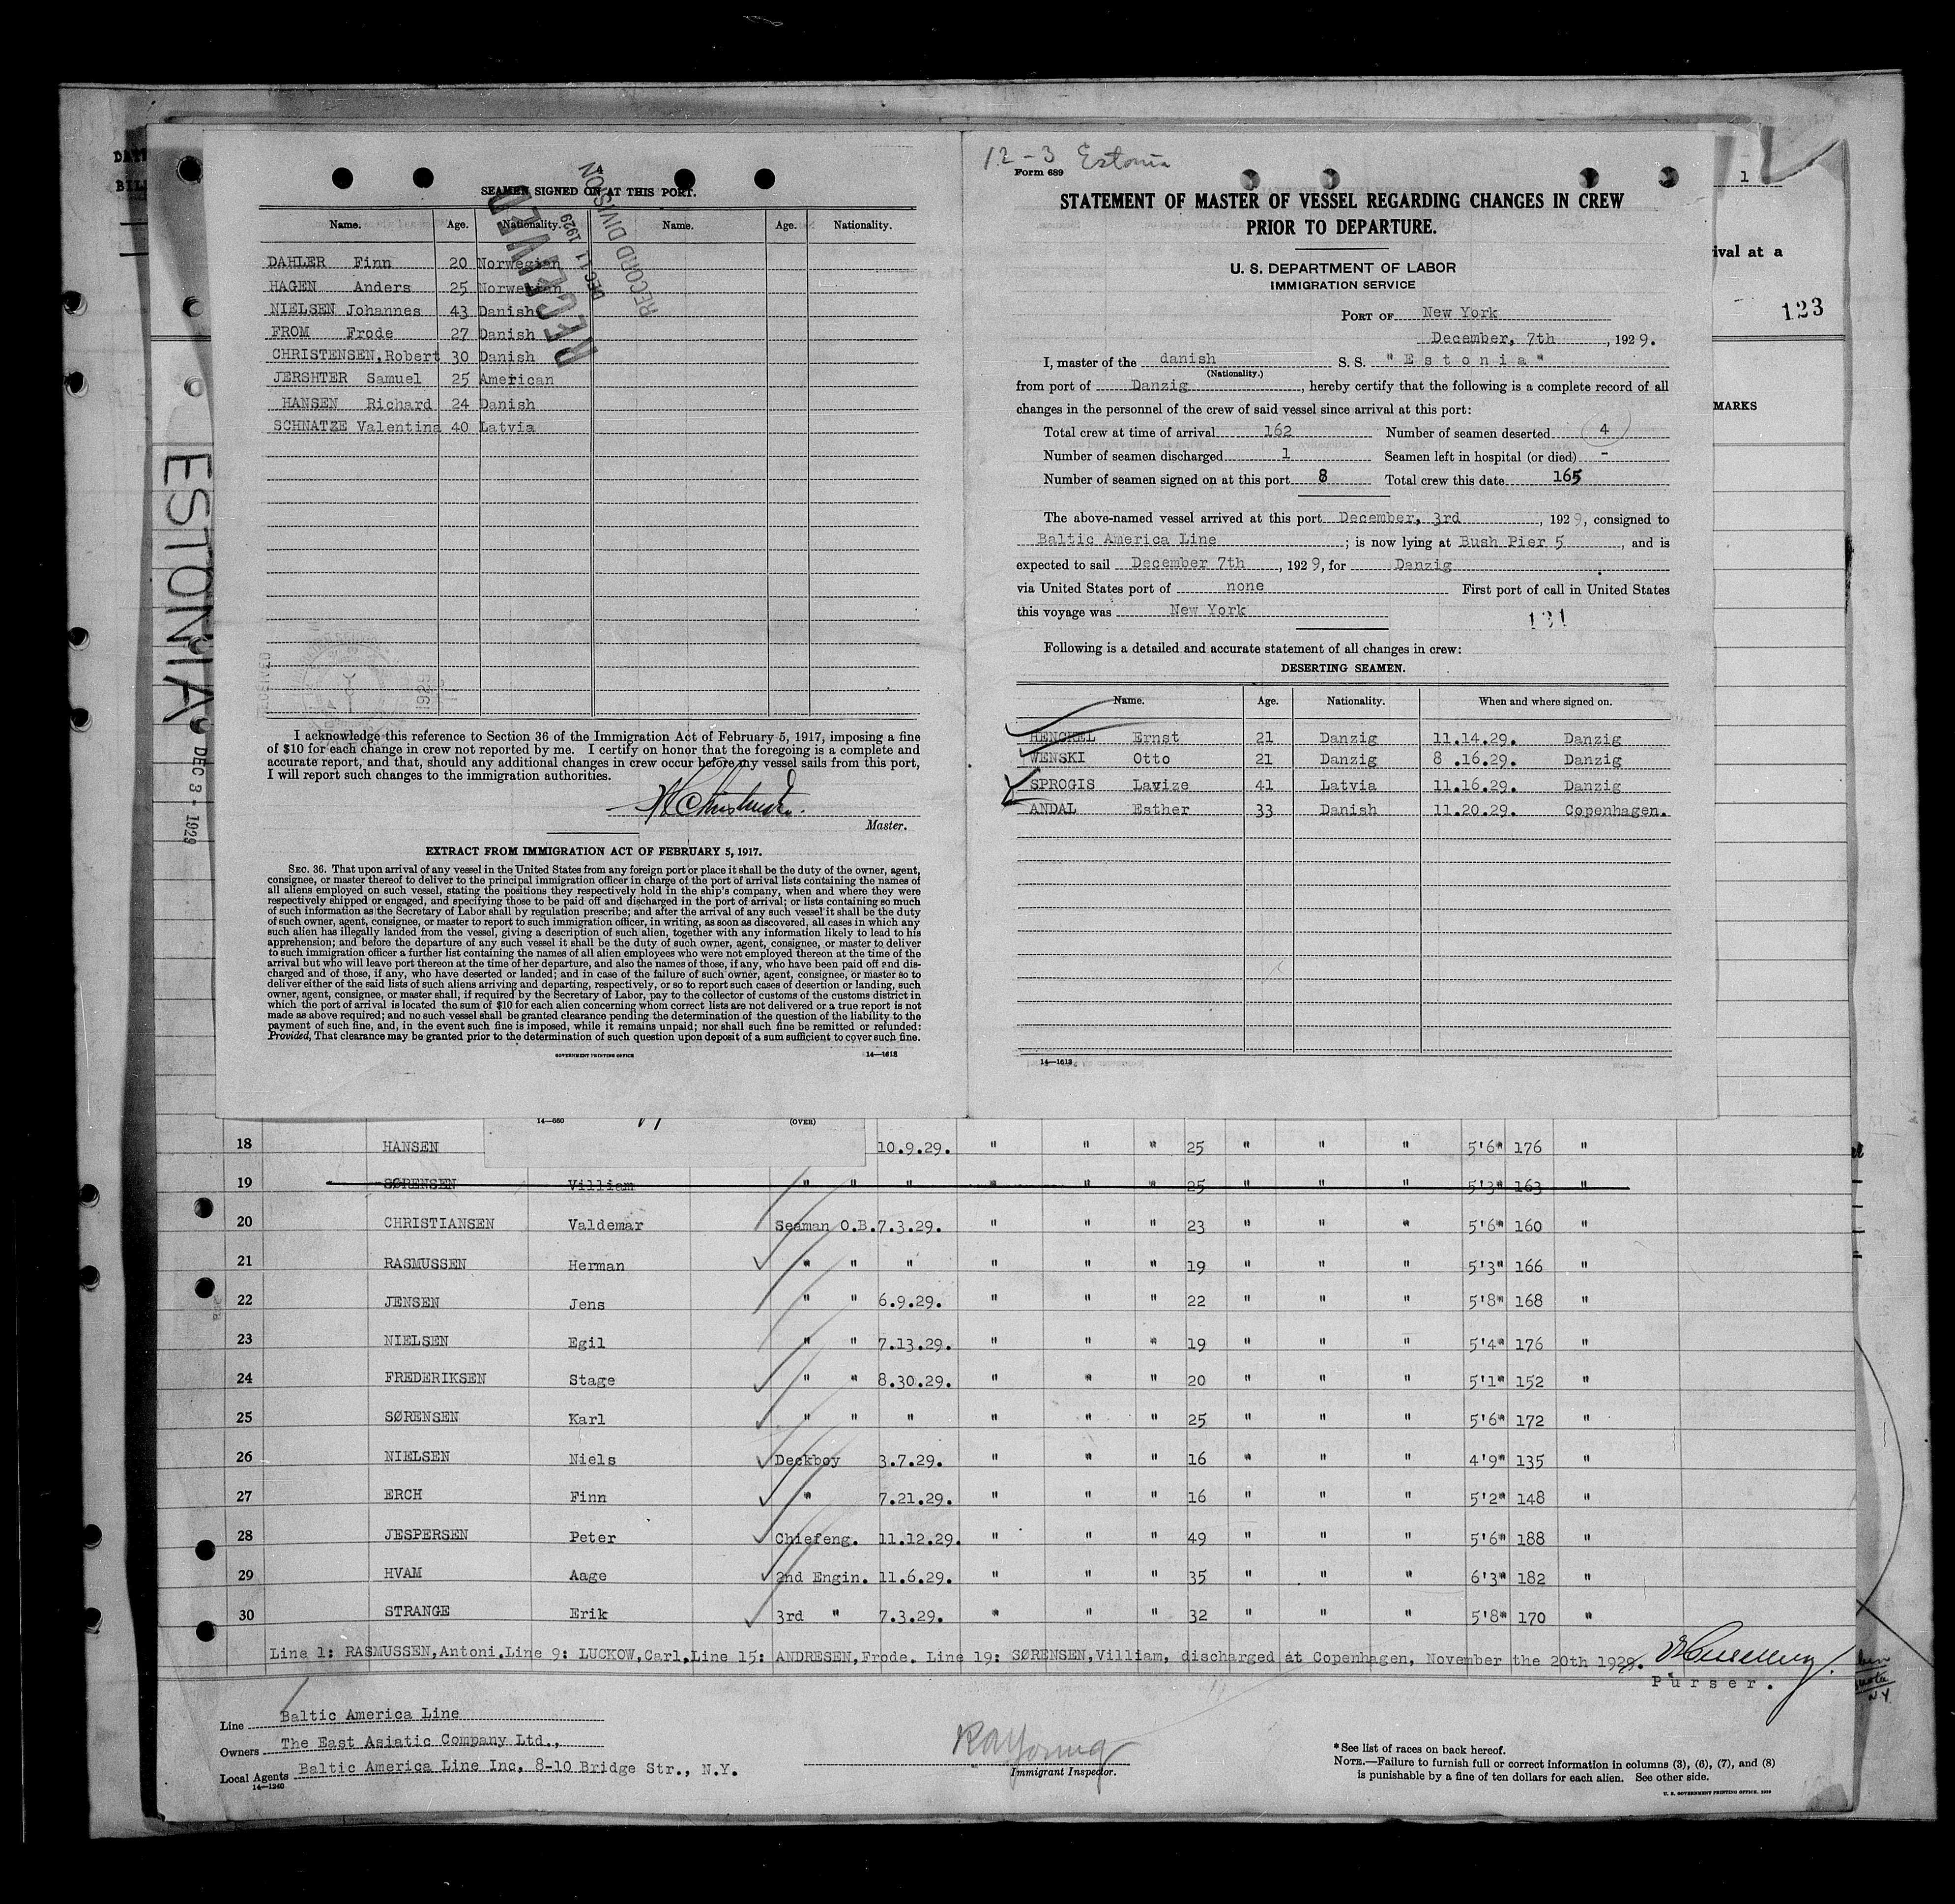 SEAMEN SIGNED ON AT THIS PORT.
Name. Age. Nationality. Name. Age. Nationality.
DAHLER Finn 20 Norwegian
HAGEN Anders 25 Norwegian
NIELSEN Johannes 43 Danish
FROM Frode 27 Danish
CHRISTENSEN,Robert 30 Danish
JERSHTER Samuel 25 American
HANSEN Richard 24 Danish
SCHNATZE Valentina 40 Latvia
RECEIVED
DEC 11 1929
RECORD DIVISION
I acknowledge this reference to Section 36 of the Immigration Act of February 5, 1917, imposing a fine
of $10 for each change in crew not reported by me. I certify on honor that the foregoing is a complete and
accurate report, and that, should any additional changes in crew occur before my vessel sails from this port,
I will report such changes to the immigration authorities.
Master.
EXTRACT FROM IMMIGRATION ACT OF FEBRUARY 5, 1917.
SEC. 36. That upon arrival of any vessel in the United States from any foreign port or place it shall be the duty of the owner, agent,
consignee, or master thereof to deliver to the principal immigration officer in charge of the port of arrival lists containing the names of
all aliens employed on such vessel, stating the positions they respectively hold in the ship's company, when and where they were
respectively shipped or engaged, and specifying those to be paid off and discharged in the port of arrival; or lists containing so much
of such information as the Secretary of Labor shall by regulation prescribe; and after the arrival of any such vessel it shall be the duty
of such owner, agent, consignee, or master to report to such immigration officer, in writing, as soon as discovered, all cases in which any
such alien has illegally landed from the vessel, giving a description of such alien, together with any information likely to lead to his
apprehension; and before the departure of any such vessel it shall be the duty of such owner, agent, consignee, or master to deliver
to such immigration officer a further list containing the names of all alien employees who were not employed thereon at the time of the
arrival but who will leave port thereon at the time of her departure, and also the names of those, if any, who have been paid off and dis-
charged and of those, if any, who have deserted or landed; and in case of the failure of such owner, agent, consignee, or master so to
deliver either of the said lists of such aliens arriving and departing, respectively, or so to report such cases of desertion or landing, such
owner, agent, consignee, or master shall, if required by the Secretary of Labor, pay to the collector of customs of the customs district in
which the port of arrival is located the sum of $10 for each alien concerning whom correct lists are not delivered or a true report is not
made as above required; and no such vessel shall be granted clearance pending the determination of the question of the liability to the
payment of such fine, and, in the event such fine is imposed, while it remains unpaid; nor shall such fine be remitted or refunded:
Provided, That clearance may be granted prior to the determination of such question upon deposit of a sum sufficient to cover such fine.
GOVERNMENT PRINTING OFFICE 14—1613
12-3 Estonia
Form 689
STATEMENT OF MASTER OF VESSEL REGARDING CHANGES IN CREW
PRIOR TO DEPARTURE.
U. S. DEPARTMENT OF LABOR
IMMIGRATION SERVICE
PORT OF New York
December, 7th , 1929.
I, master of the danish S. S. "Estonia"
(Nationality.)
from port of Danzig , hereby certify that the following is a complete record of all
changes in the personnel of the crew of said vessel since arrival at this port:
Total crew at time of arrival 162 Number of seamen deserted 4
Number of seamen discharged 1 Seamen left in hospital (or died) -
Number of seamen signed on at this port 8 Total crew this date 165
The above-named vessel arrived at this port December, 3rd , 1929, consigned to
Baltic America Line ; is now lying at Bush Pier 5 , and is
expected to sail December 7th , 1929, for Danzig
via United States port of none First port of call in United States
this voyage was New York
131
Following is a detailed and accurate statement of all changes in crew:
DESERTING SEAMEN.
Name. Age. Nationality. When and where signed on.
HENCKEL Ernst 21 Danzig 11.14.29. Danzig
WENSKI Otto 21 Danzig 8 .16.29. Danzig
SPROGIS Lavize 41 Latvia 11.16.29. Danzig
ANDAL Esther 33 Danish 11.20.29. Copenhagen.
14—1613
1
ival at a
123
MARKS
ESTONIA
DEC 3 - 1929
14—680 (OVER)
18 HANSEN 10.9.29. " " " 25 " " " 5'6" 176 "
19 SØRENSEN Villiam " " " " " " 25 " " " 5'3" 163 "
20 CHRISTIANSEN Valdemar Seaman O.B. 7.3.29. " " " 23 " " " 5'6" 160 "
21 RASMUSSEN Herman " " " " " " 19 " " " 5'3" 166 "
22 JENSEN Jens " " 6.9.29. " " " 22 " " " 5'8" 168 "
23 NIELSEN Egil " " 7.13.29. " " " 19 " " " 5'4" 176 "
24 FREDERIKSEN Stage " " 8.30.29. " " " 20 " " " 5'1" 152 "
25 SØRENSEN Karl " " " " " " 25 " " " 5'6" 172 "
26 NIELSEN Niels Deckboy 3.7.29. " " " 16 " " " 4'9" 135 "
27 ERCH Finn " 7.21.29. " " " 16 " " " 5'2" 148 "
28 JESPERSEN Peter Chiefeng. 11.12.29. " " " 49 " " " 5'6" 188 "
29 HVAM Aage 2nd Engin. 11.6.29. " " " 35 " " " 6'3" 182 "
30 STRANGE Erik 3rd " 7.3.29. " " " 32 " " " 5'8" 170 "
Line 1: RASMUSSEN,Antoni.Line 9: LUCKOW,Carl,Line 15: ANDRESEN,Frode. Line 19: SØRENSEN,Villiam, discharged at Copenhagen, November the 20th 1929.
Purser.
Line Baltic America Line
Owners The East Asiatic Company Ltd.,
Local Agents Baltic America Line Inc, 8-10 Bridge Str., N.Y.
14—1240
RA Young
Immigrant Inspector.
* See list of races on back hereof.
NOTE.—Failure to furnish full or correct information in columns (3), (6), (7), and (8)
is punishable by a fine of ten dollars for each alien. See other side.
U. S. GOVERNMENT PRINTING OFFICE, 1929